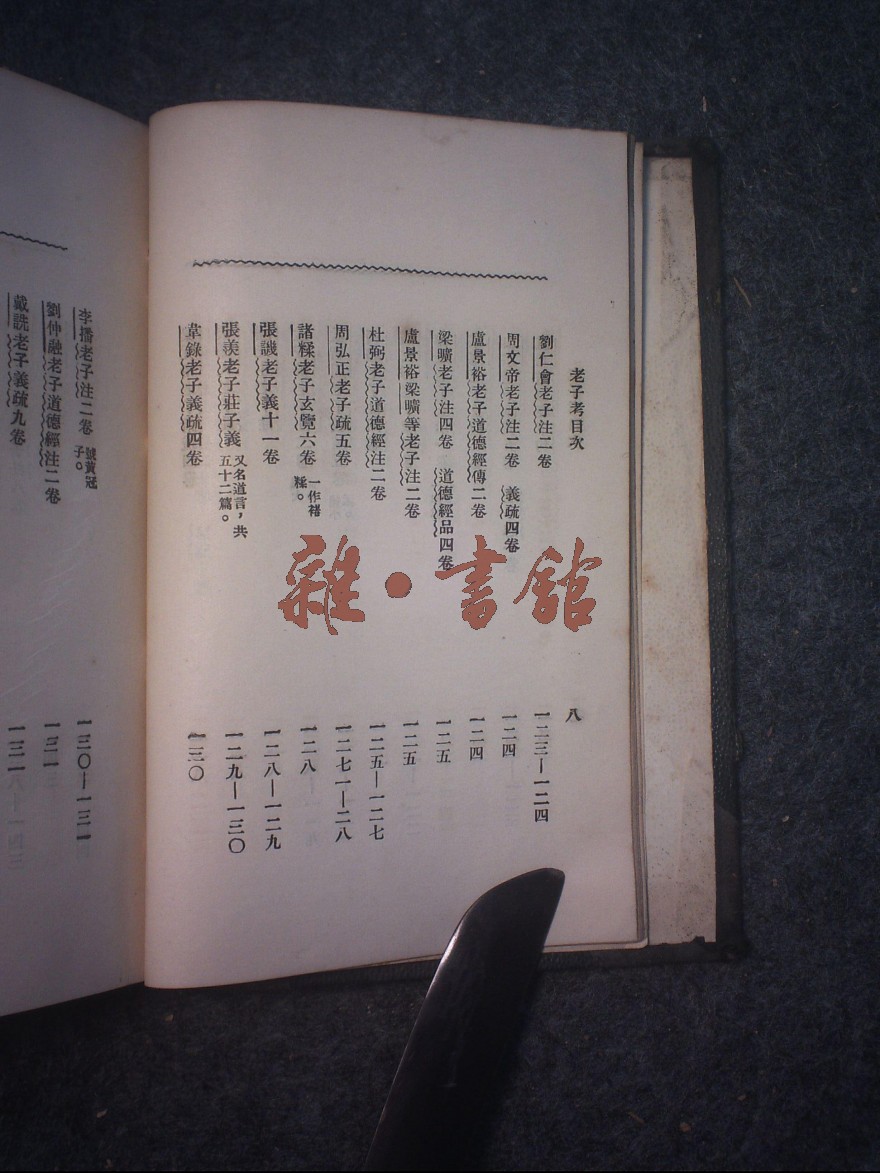 老子考目次 八
劉仁會老子注二卷 一二三—一二四
周文帝老子注二卷 義疏四卷 一二四
盧景裕老子道德經傳二卷 一二四
梁曠老子注四卷 道德經品四卷 一二五
盧景裕梁曠等老子注二卷 一二五
杜弼老子道德經注二卷 一二五—一二七
周弘正老子疏五卷 一二七—一二八
諸糅老子玄覽六卷 一作褚糅。 一二八
張譏老子義十一卷 一二八—一二九
張羨老子莊子義 又名道言，共五十二篇。 一二九—一三〇
韋錄老子義疏四卷 一三〇
李播老子注二卷 號黃冠子。 一三〇—一三一
劉仲融老子道德經注二卷 一三一
戴詵老子義疏九卷
雜·書館